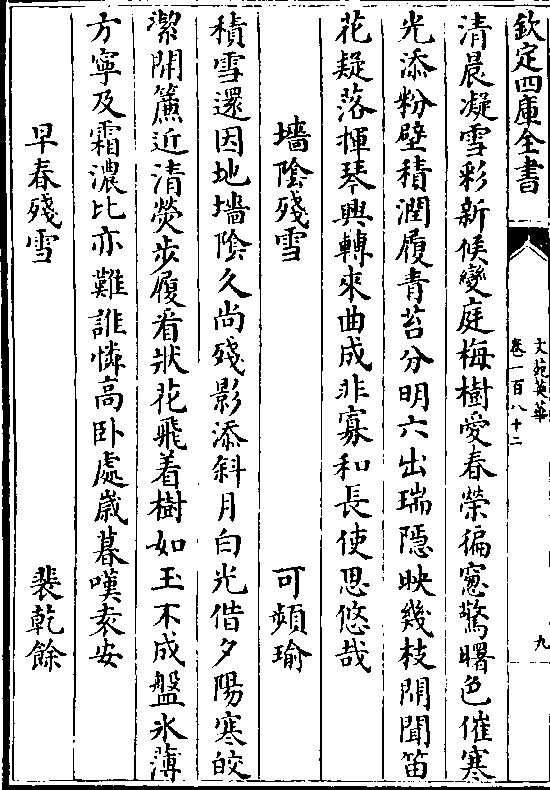 欽定四庫全書
文苑英華
卷一百八十二
九
清晨凝雪彩新候變庭梅樹愛春榮徧窻驚曙色催寒
光添粉壁積潤履青苔分明六出瑞隱映幾枝開聞笛
花疑落揮琴興轉來曲成非寡和長使思悠哉
墻隂殘雪
可頻瑜
積雪還因地墻隂久尚殘影添斜月白光借夕陽寒皎
潔開簾近清熒步履看狀花飛着樹如玉不成盤氷薄
方寧及霜濃比亦難誰憐高卧處歲暮嘆袁安
早春殘雪
裴乾餘